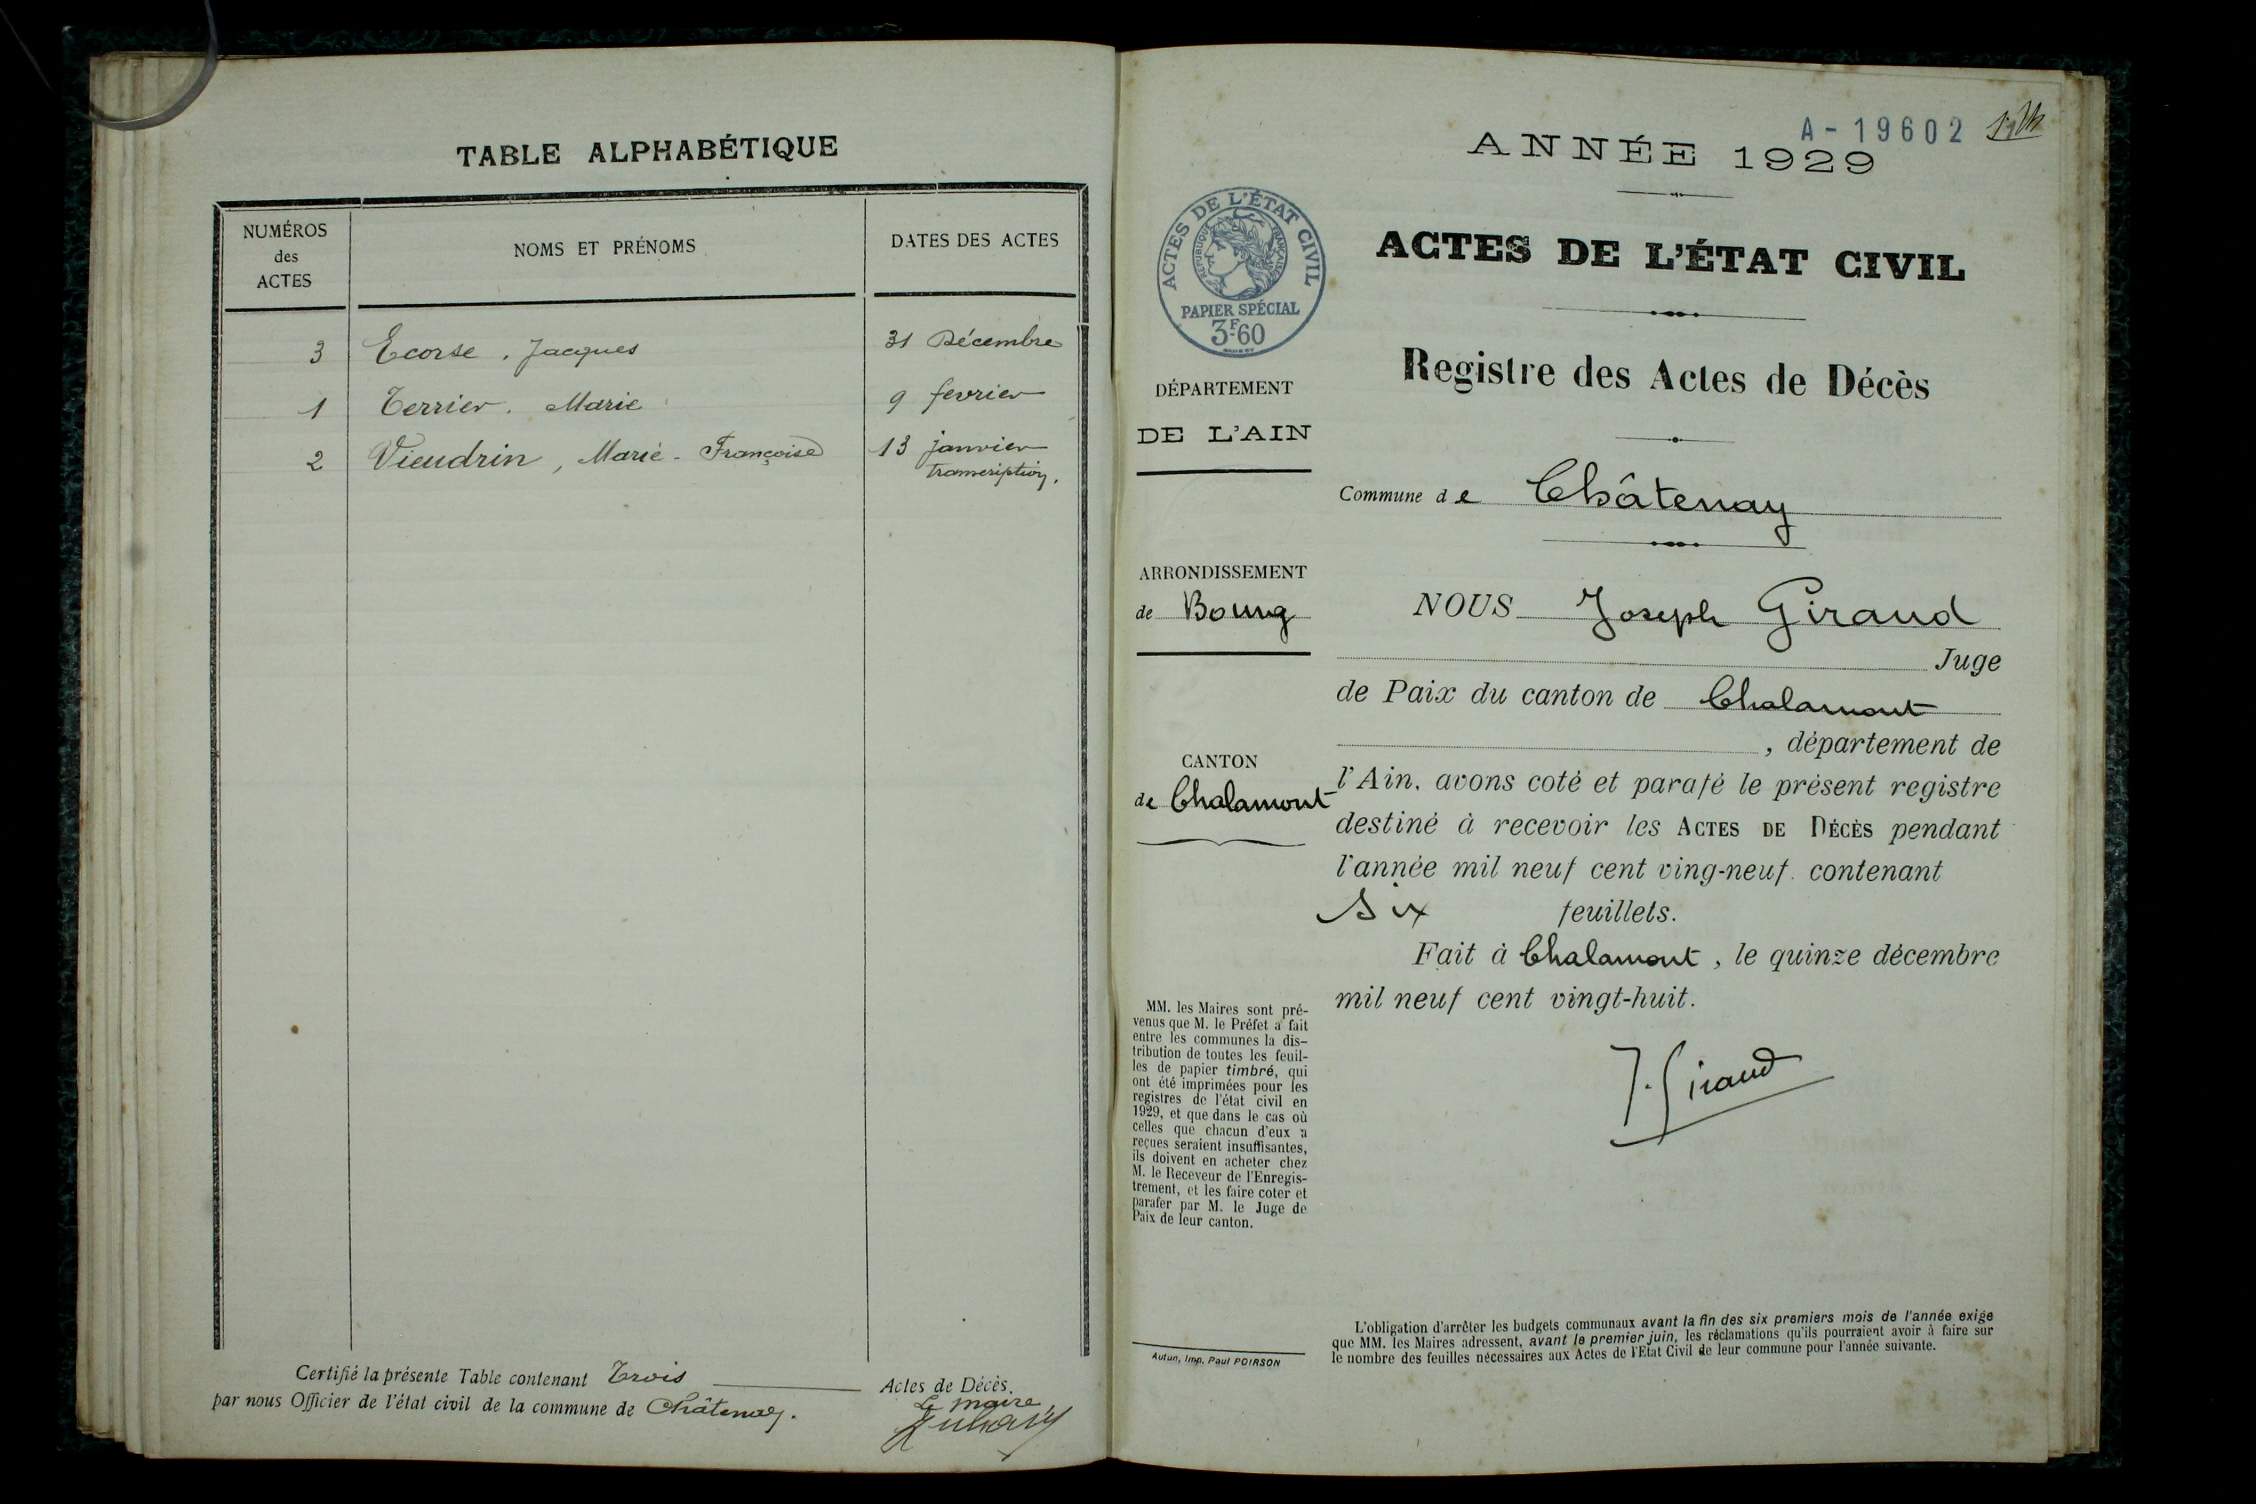 TABLE ALPHABÉTIQUE
NUMÉROS
des
ACTES
NOMS ET PRÉNOMS
DATES DES ACTES
3 Ecorse, Jacques 31 Décembre
1 Terrier, Marie 9 fevrier
2 Vieudrin, Marie-Françoise 13 janvier
transcription.
Certifié la présente Table contenant Trois Actes de Décès.
par nous Officier de l'état civil de la commune de Châtenay.
Le maire
A-19602
ANNÉE 1929
ACTES DE L'ÉTAT CIVIL
RÉPUBLIQUE FRANÇAISE
PAPIER SPÉCIAL
3F60
ACTES DE L'ÉTAT CIVIL
Registre des Actes de Décès
DÉPARTEMENT
DE L'AIN
Commune de Châtenay
ARRONDISSEMENT
de Bourg
CANTON
de Chalamont
NOUS Joseph Giraud
Juge
de Paix du canton de Chalamont
, département de
l'Ain, avons coté et parafé le présent registre
destiné à recevoir les ACTES DE DÉCÈS pendant
l'année mil neuf cent ving-neuf. contenant
Six feuillets.
Fait à Chalamont, le quinze décembre
mil neuf cent vingt-huit.
J. Giraud
MM. les Maires sont pré-
venus que M. le Préfet a fait
entre les communes la dis-
tribution de toutes les feuil-
les de papier timbré, qui
ont été imprimées pour les
registres de l'état civil en
1929, et que dans le cas où
celles que chacun d'eux a
reçues seraient insuffisantes,
ils doivent en acheter chez
M. le Receveur de l'Enregis-
trement, et les faire coter et
parafer par M. le Juge de
Paix de leur canton.
Autun, Imp. Paul POIRSON
L'obligation d'arrêter les budgets communaux avant la fin des six premiers mois de l'année exige
que MM. les Maires adressent, avant le premier juin, les réclamations qu'ils pourraient avoir à faire sur
le nombre des feuilles nécessaires aux Actes de l'Etat Civil de leur commune pour l'année suivante.